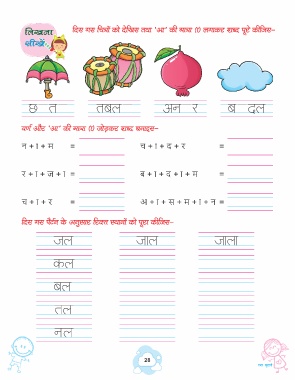 लिखना सीखें-
दिए गए चित्रों को देखिए तथा 'आ' की मात्रा (ा) लगाकर शब्द पूरे कीजिए-
छ त तबल अन र ब दल
वर्ण और 'आ' की मात्रा (ा) जोड़कर शब्द बनाइए-
न + ा + म = च + ा + द + र =
र + ा + ज + ा = ब + ा + द + ा + म =
च + ा + र = आ + ा + स + म + ा + न =
दिए गए पैटर्न के अनुसार रिक्त स्थानों को पूरा कीजिए-
जल जाल जाला
कल
बल
तल
नल
28